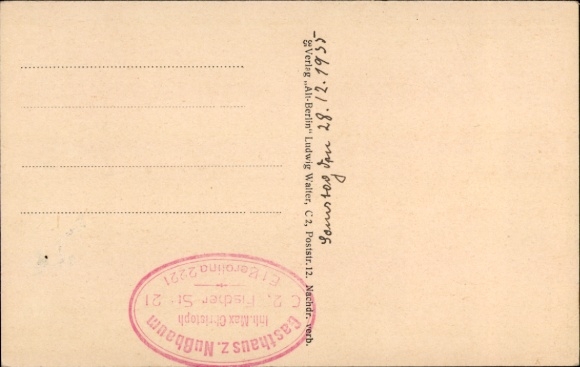 Samstag den 28.12.1935
g8 Verlag „Alt-Berlin“ Ludwig Walter, C 2, Poststr. 12. Nachdr. verb.
Gasthaus z. Nußbaum
Inh. Max Christoph
C 2, Fischer Str. 21
E 1 Berolina 2221